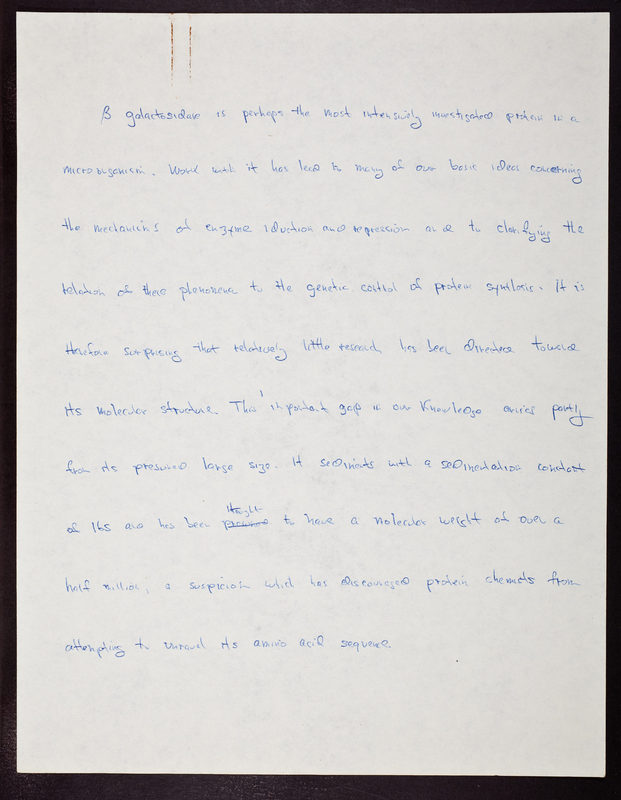 β galactosidase is perhaps the most intensively investigated protein in a
microorganism. Work with it has lead to many of our basic ideas concerning
the mechanisms of enzyme iduction and repression and to clarifying the
relation of these phenomena to the genetic control of protein synthesis. It is
therefore surprising that relatively little research has been directed toward
its molecular structure. This important gap in our knowledge arises partly
from its presumed large size. It sediments with a sedimentation constant
thought
of 16s and has been presumed to have a molecular weight of over a
half million, a suspicion which has discouraged protein chemists from
attempting to unravel its amino acid sequence.